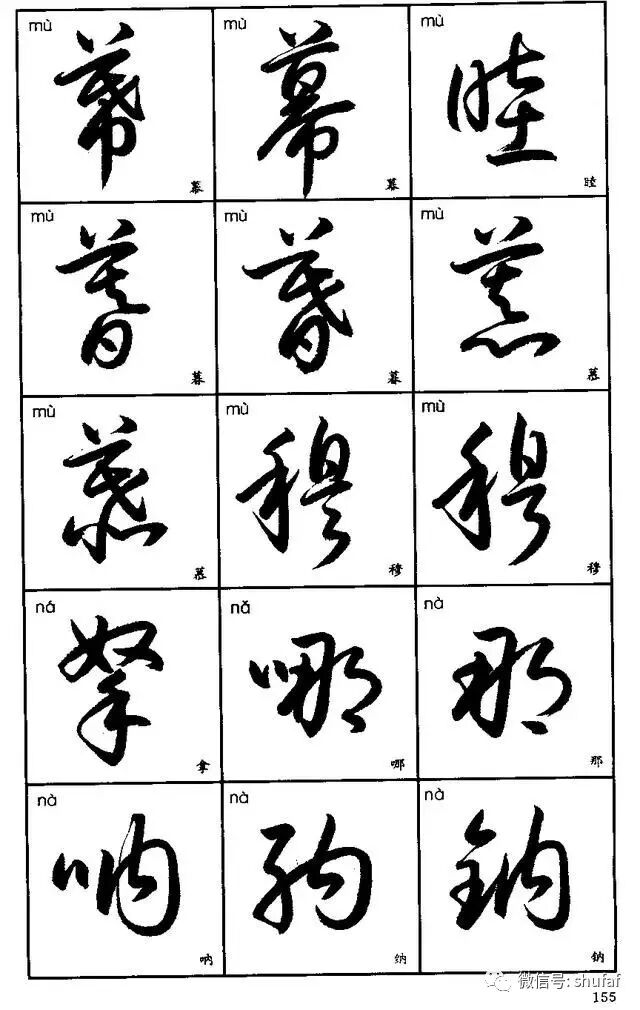 mù mù mù
幕 幕 睦
幕 幕 睦
mù mù mù
暮 暮 慕
暮 暮 慕
mù mù mù
慕 穆 穆
慕 穆 穆
ná nǎ nà
拏 哪 那
拿 哪 那
nà nà nà
呐 纳 鈉
呐 纳 钠
微信号: shufaf
155